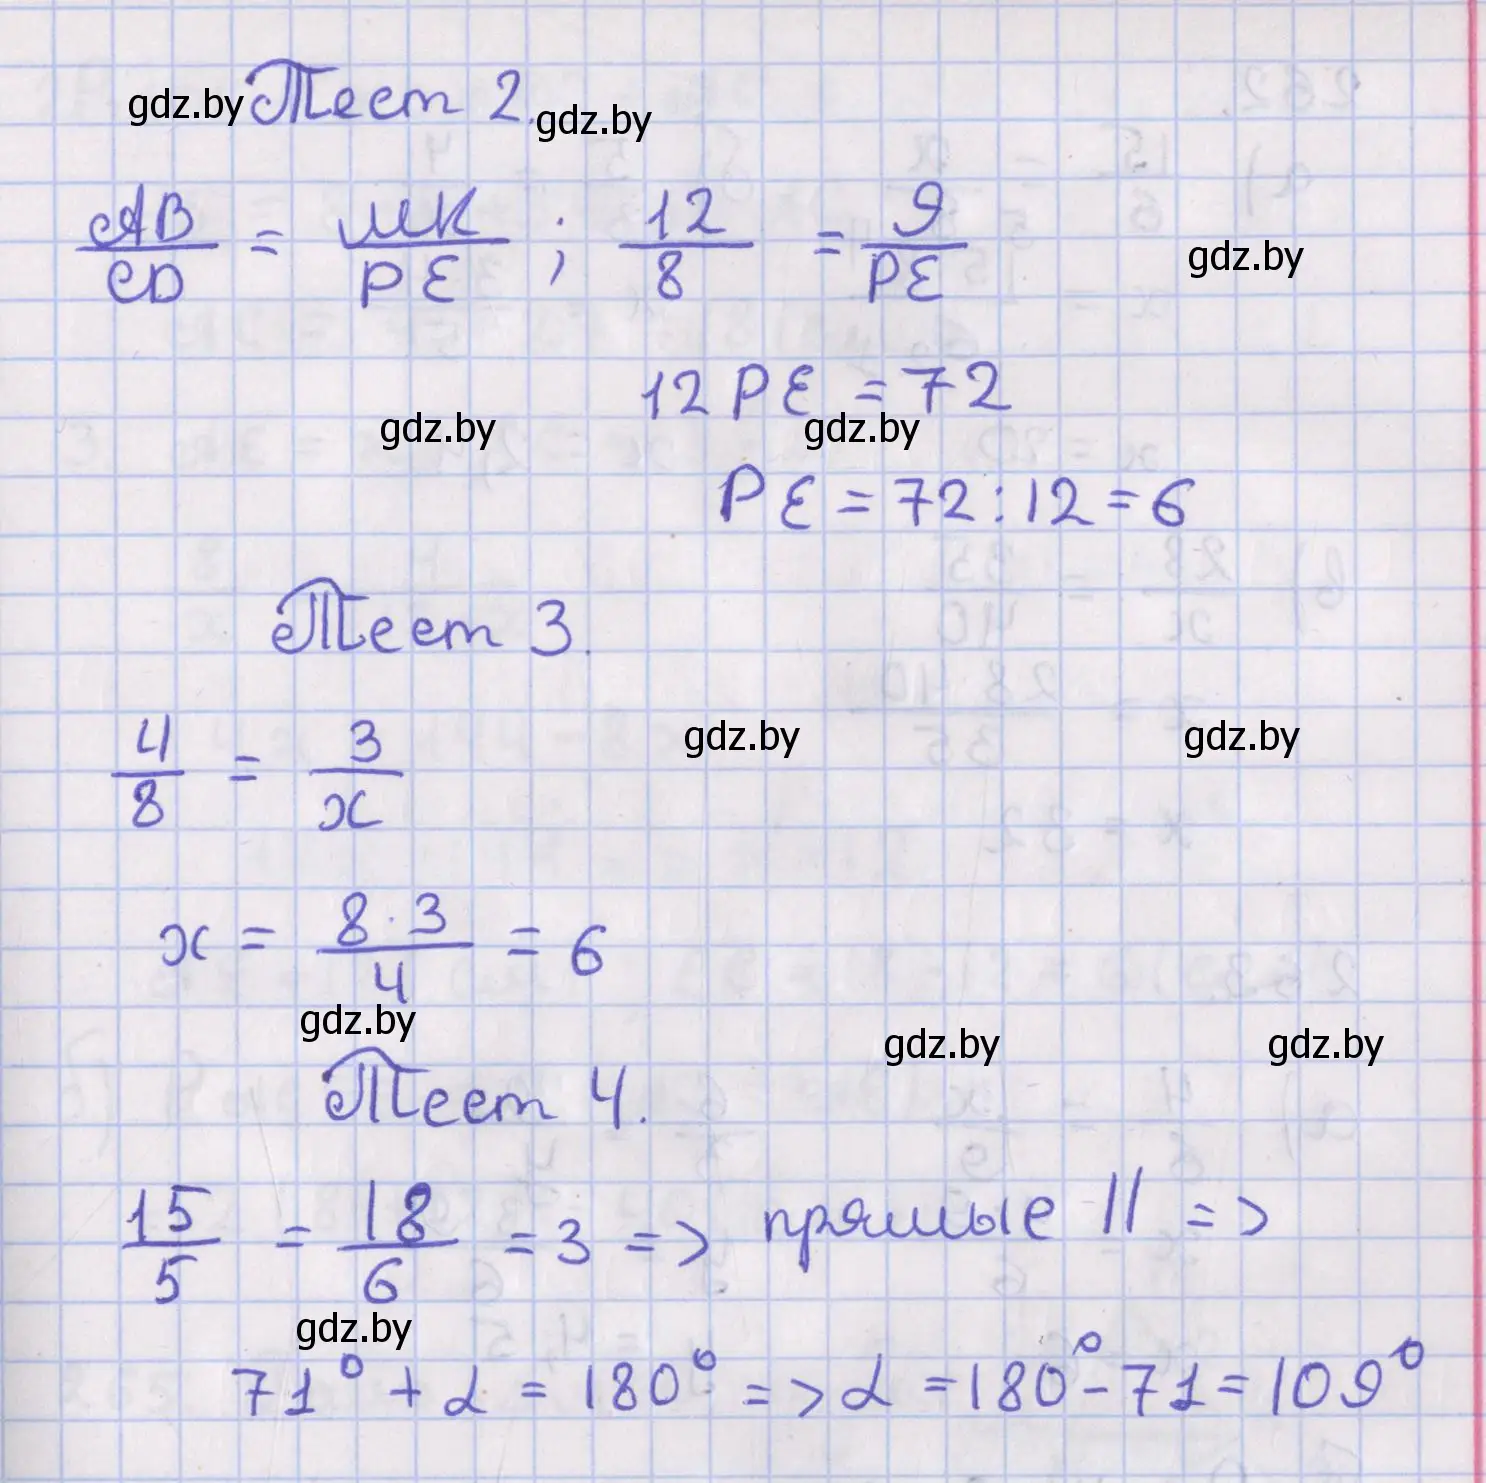 gdz.by Тест 2. gdz.by
AB/CD = MK/PE ; 12/8 = 9/PE gdz.by
12 PE = 72
gdz.by gdz.by
PE = 72 : 12 = 6
Тест 3.
4/8 = 3/x gdz.by gdz.by
x = 8 · 3/4 = 6
gdz.by gdz.by gdz.by
Тест 4.
15/5 = 18/6 = 3 => прямые || =>
gdz.by
71° + α = 180° => α = 180° - 71 = 109°